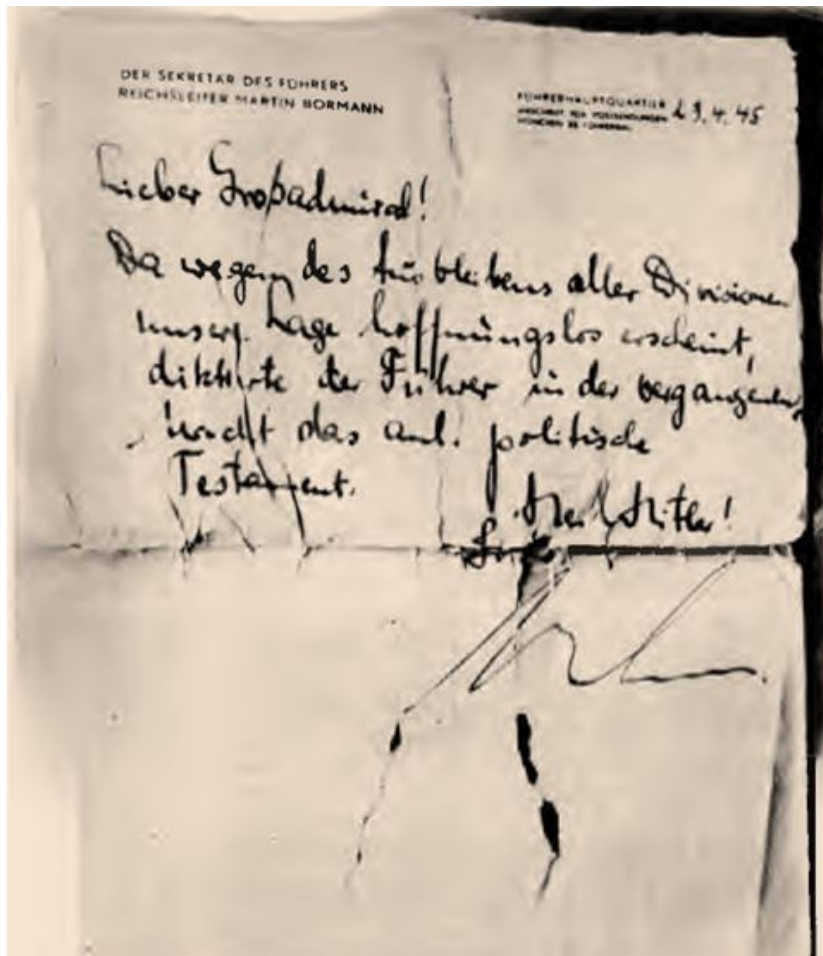 DER SEKRETÄR DES FÜHRERS
REICHSLEITER MARTIN BORMANN
FÜHRERHAUPTQUARTIER
ANSCHRIFT FÜR POSTSENDUNGEN
29.4.45
Lieber Großadmiral!
Da wegen des Ausbleibens aller Divisionen
unsere Lage hoffnungslos erscheint,
diktirte der Führer in der vergangenen
Nacht das anl. politische
Testament.
Heil Hitler!